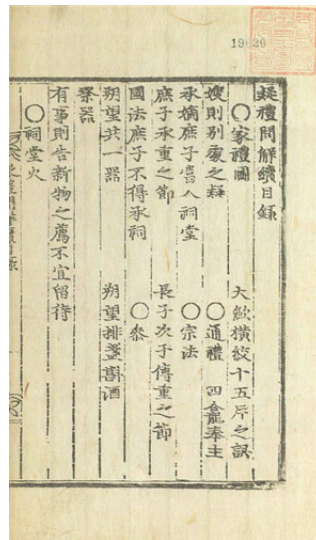 疑禮問解續目錄
○家禮圖 大歛橫絞十五片之誤
嫂則別處之疑 ○通禮 四龕奉主
承嫡庶子當入祠堂 ○宗法
庶子承重之節 長子次子傳重之節
國法庶子不得承祠 ○參
朔望共一器 朔望排盞斟酒
祭器
有事則告新物之薦不宜留待
○祠堂火